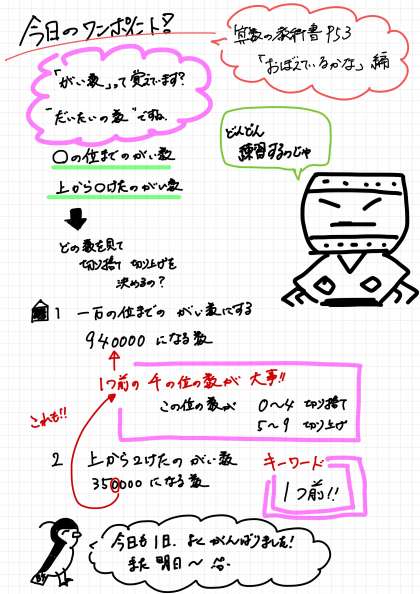 今日のワンポイント!
算数の教科書 P53
「おぼえているかな」編
「がい数」って覚えています?
"だいたいの数"ですね
どんどん
練習するのじゃ
〇の位までのがい数
上から〇けたのがい数
どの数を見て
切り捨て 切り上げを
決めるの?
1 一百の位までの がい数にする
940000 になる数
1つ前の 千の位の数が 大事!!
この位の数が 0~4 切り捨て
5~9 切り上げ
これも!!
2 上から2けたの がい数
350000 になる数
キーワード
1つ前!!
今日も1日、よくがんばりました!
また 明日~